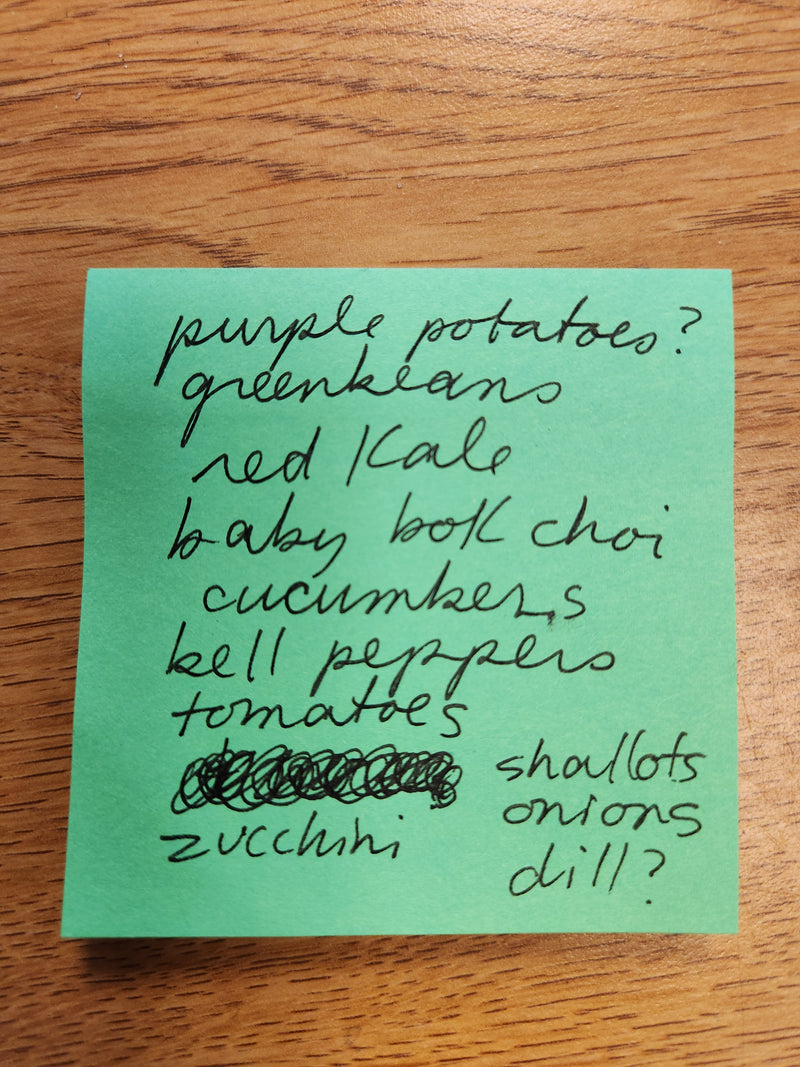 purple potatoes?
greenbeans
red Kale
baby bok choi
cucumbers
bell peppers
tomatoes
zucchini
shallots
onions
dill?